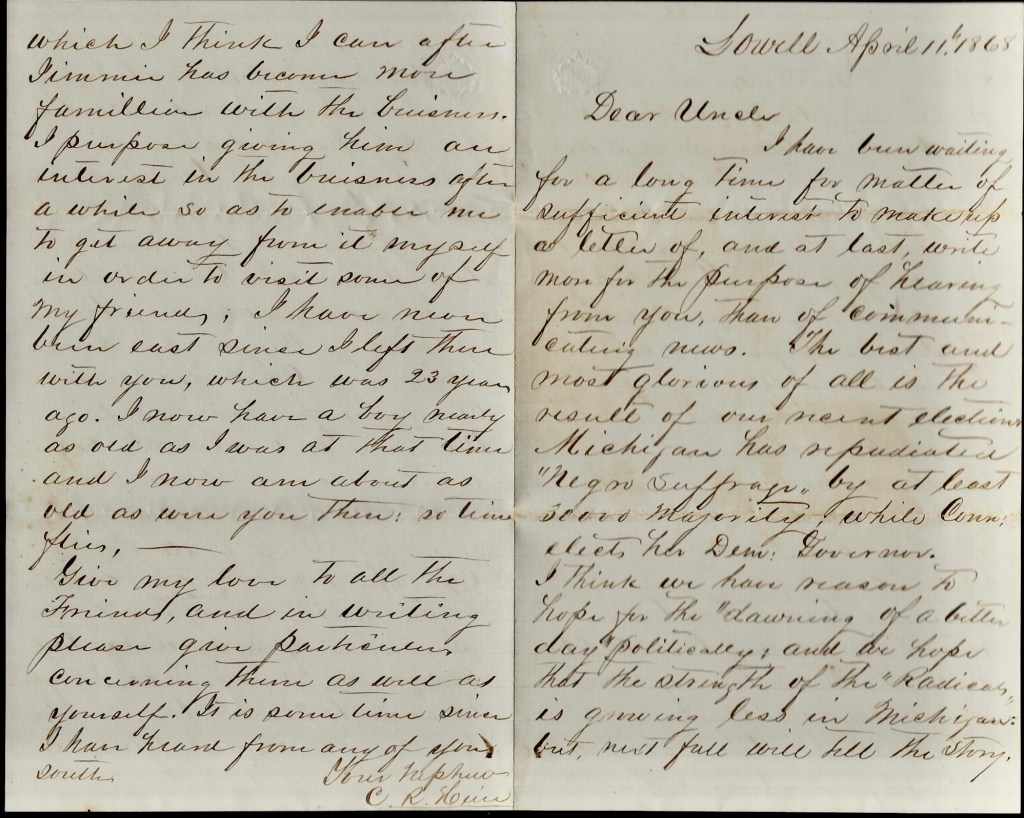 Lowell April 11th, 1868
Dear Uncle
I have been waiting
for a long time for matter of
sufficient interest to make up
a letter of, and at last, write
more for the purpose of hearing
from you, than of communi-
cating news. The best and
most glorious of all is the
result of our recent elections
Michigan has repudiated
"Negro Suffrage" by at least
30000 Majority, while Conn:
elects her Dem: Governor.
I think we have reason to
hope for the "dawning of a better
day" politically; and we hope
that the strength of the "Radicals"
is growing less in Michigan:
but, next fall will tell the story.
which I think I can after
Jimmie has become more
famillier with the buisness.
I purpose giving him an
interest in the buisness after
a while so as to enable me
to get away from it myself
in order to visit some of
my friends; I have never
been east since I left there
with you, which was 23 years
ago. I now have a boy nearly
as old as I was at that time
and I now am about as
old as were you then: so time
flies, —
Give my love to all the
Friends, and in writing
please give particulars
concerning them as well as
yourself. It is some time since
I have heard from any of your
south
Your Nephew
C. R. Hine